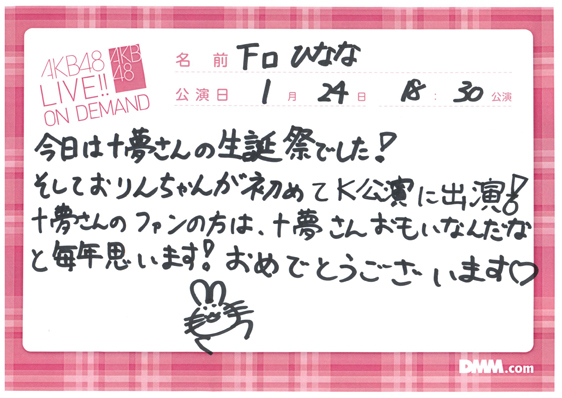 AKB48
LIVE!!
ON DEMAND
AKB
48
名前 下口ひなな
公演日 1月24日 18:30公演
今日は十夢さんの生誕祭でした!
そしておりんちゃんが初めてK公演に出演!
十夢さんのファンの方は、十夢さんおもいなんだな
と毎年思います!おめでとうございます♡
DMM.com